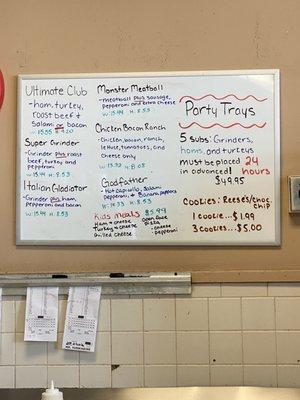 Ultimate Club
-ham, turkey,
roast beef &
Salami or bacon
W: 15.55 H: 9.20
Super Grinder
-Grinder plus roast
beef, turkey, and
pepperoni
W: 15.49 H: 8.53
Italian Gladiator
-Grinder plus ham,
pepperoni and bacon
W: 15.49 H: 8.53
Monster Meatball
-meatball plus sausage,
pepperoni and extra cheese
W: 15.49 H: 8.53
Chicken Bacon Ranch
-Chicken, bacon, ranch,
lettuce, tomatoes, and
cheese only
Godfather
- Hot capicolla, Salami,
pepperoni, & banana peppers
H: 8.53
Kids Meals $5.99
Ham & cheese
Turkey & cheese
Grilled cheese
Open face
- cheese
- pepperoni
Party Trays
5 Subs: Grinders,
hams, and turkeys
must be placed 24
in advanced! hours
$49.95
Cookies: Reese's/choc.
chip
1 cookie...$1.99
3 cookies...$5.00